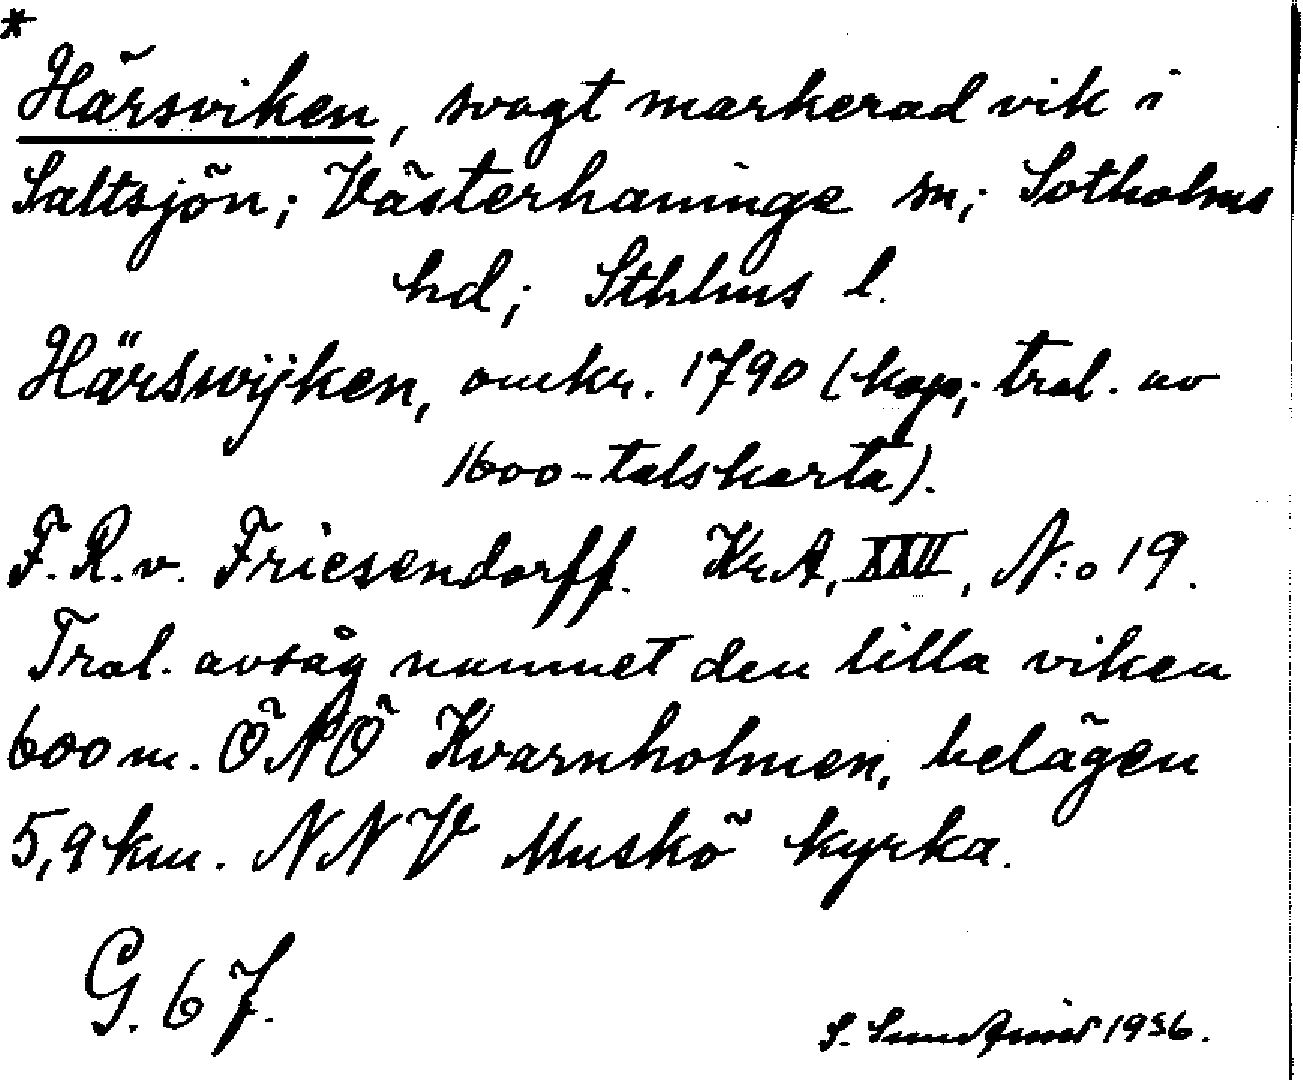 *
Härsviken, svagt markerad vik i
Saltsjön; Västerhaninge sn; Sotholms
hd; Sthlms l.
Härswijken, omkr. 1790 (kop; trol. av
1600-talskarta).
F.R.v. Friesendorff. KrA, XXVI, N:o 19.
Trol. avsåg namnet den lilla viken
600 m. ÖNÖ Kvarnholmen, belägen
5,9 km. NNV Muskö kyrka.
G. 6 f.
S. 1956.